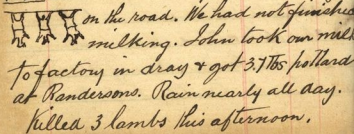 on the road. We had not finished
milking. John took our milk
to factory in dray & got 37 lbs potland
at Randersons. Rain nearly all day.
Killed 3 lambs this afternoon.